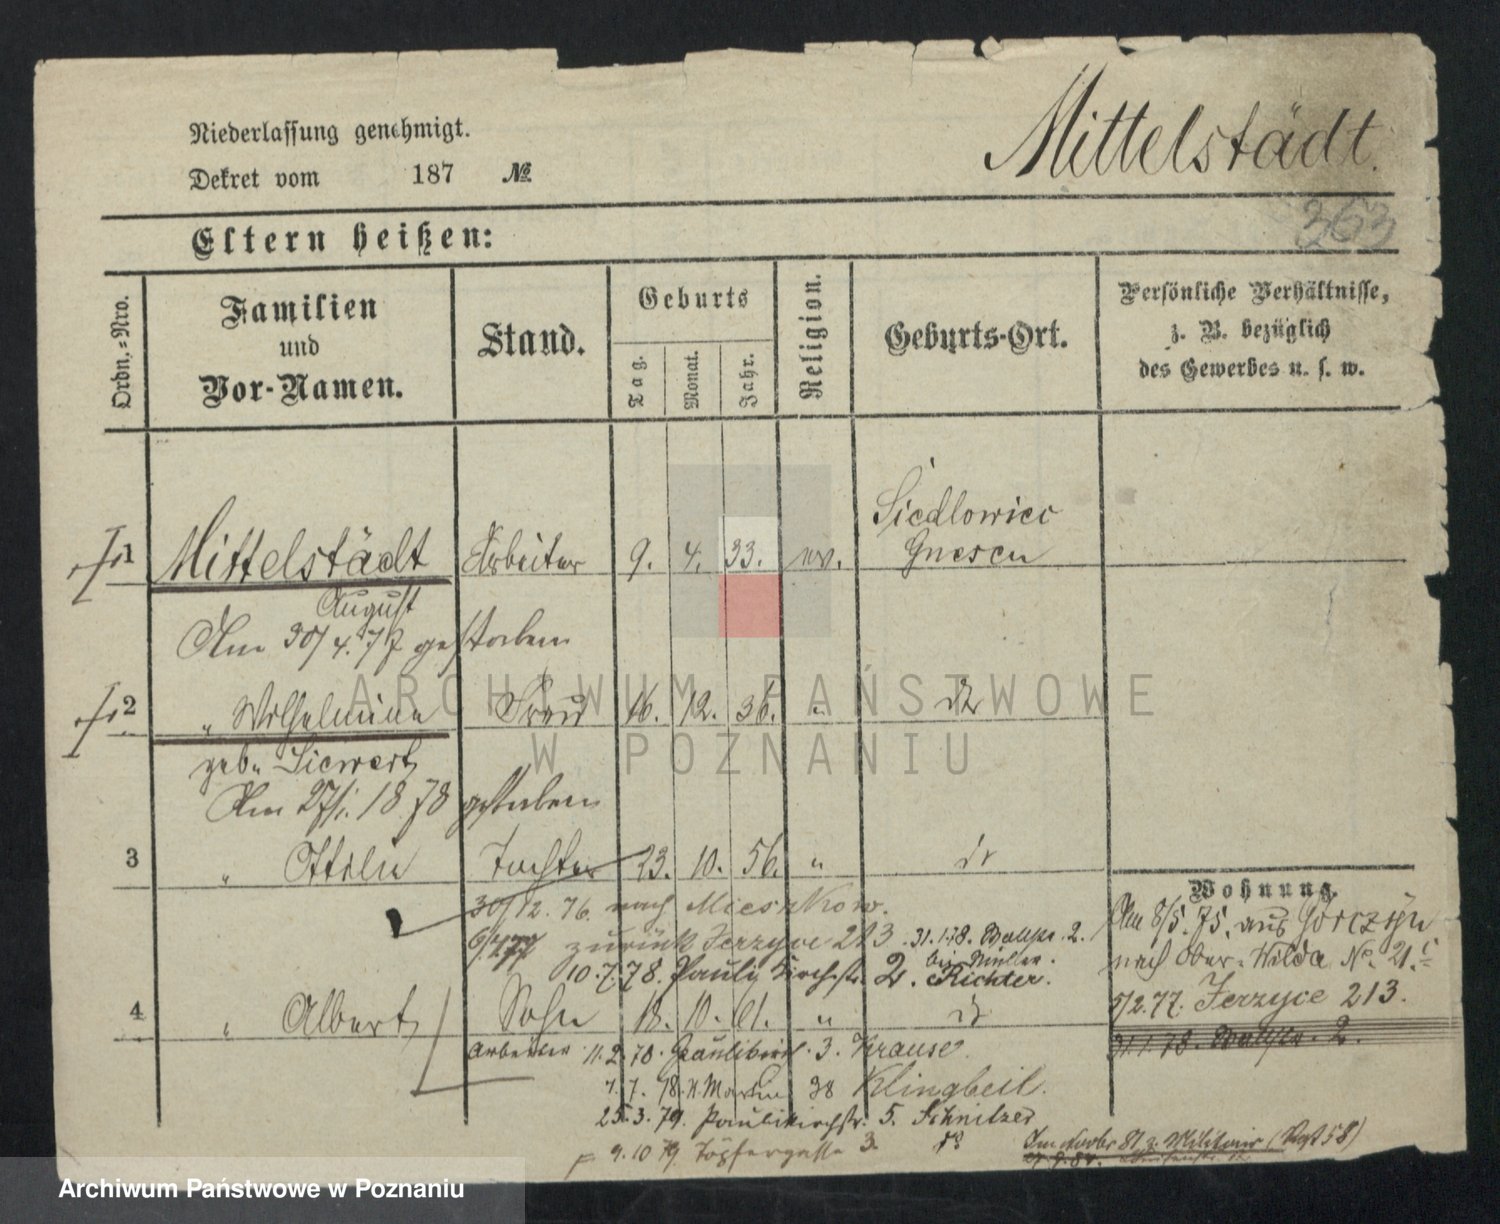 Niederlassung genehmigt.
Dekret vom 187 №
Mittelstädt.
363
Eltern heißen:
Ordn.=Nro.
Familien
und
Vor-Namen.
Stand.
Geburts
Tag.
Monat.
Jahr.
Religion.
Geburts-Ort.
Persönliche Verhältnisse,
z. B. bezüglich
des Gewerbes u. s. w.
Siedlowiec
1 Mittelstädt Arbeiter 9. 4. 33. ev. Gnesen
August
Am 30/4. 77 gestorben
2 " Wilhelmine Frau 16. 12. 36. "
geb. Siewert
Am 27/1. 1878 gestorben
3 " Ottilie Tochter 23. 10. 56. "
Wohnung.
30/12. 76. nach Mieszkow.
Am 8/5. 75. aus Górczyn
zurück Jerzyce 213. 31.1.78. 2.
nach Ober-Wilda No. 21.
bei Müller.
10.7.78. Pauli Kirchstr. 2. Richter.
5/2.77. Jerzyce 213.
4 " Albert Sohn 18. 10. 61. "
31.1.78. 2.
Arbeiter 11.2.78. 3. Krause.
1.7.78. St. Martin 38 Klingbeil.
25.3.79. Paulikirchstr. 5. Schnitzer
9.10.79. Töpfergasse 3.
Im 81 z. Militair
ARCHIWUM PAŃSTWOWE
W POZNANIU
Archiwum Państwowe w Poznaniu